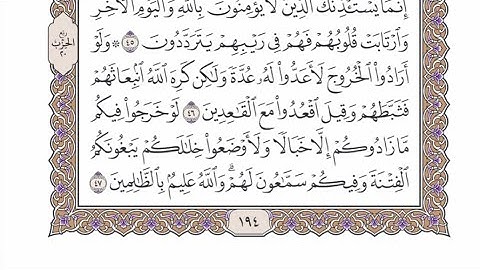 إِنَّمَا يَسْتَـْٔذِنُكَ ٱلَّذِينَ لَا يُؤْمِنُونَ بِٱللَّهِ وَٱلْيَوْمِ ٱلْأَخِرِ
وَٱرْتَابَتْ قُلُوبُهُمْ فَهُمْ فِى رَيْبِهِمْ يَتَرَدَّدُونَ ٤٥ ۞ وَلَوْ
ربع
الحزب
٢٠
أَرَادُوا۟ ٱلْخُرُوجَ لَأَعَدُّوا۟ لَهُۥ عُدَّةً وَلَٰكِن كَرِهَ ٱللَّهُ ٱنۢبِعَاثَهُمْ
فَثَبَّطَهُمْ وَقِيلَ ٱقْعُدُوا۟ مَعَ ٱلْقَٰعِدِينَ ٤٦ لَوْ خَرَجُوا۟ فِيكُم
مَّا زَادُوكُمْ إِلَّا خَبَالًا وَلَأَوْضَعُوا۟ خِلَٰلَكُمْ يَبْغُونَكُمُ
ٱلْفِتْنَةَ وَفِيكُمْ سَمَّٰعُونَ لَهُمْ ۗ وَٱللَّهُ عَلِيمٌۢ بِٱلظَّٰلِمِينَ ٤٧
١٩٤